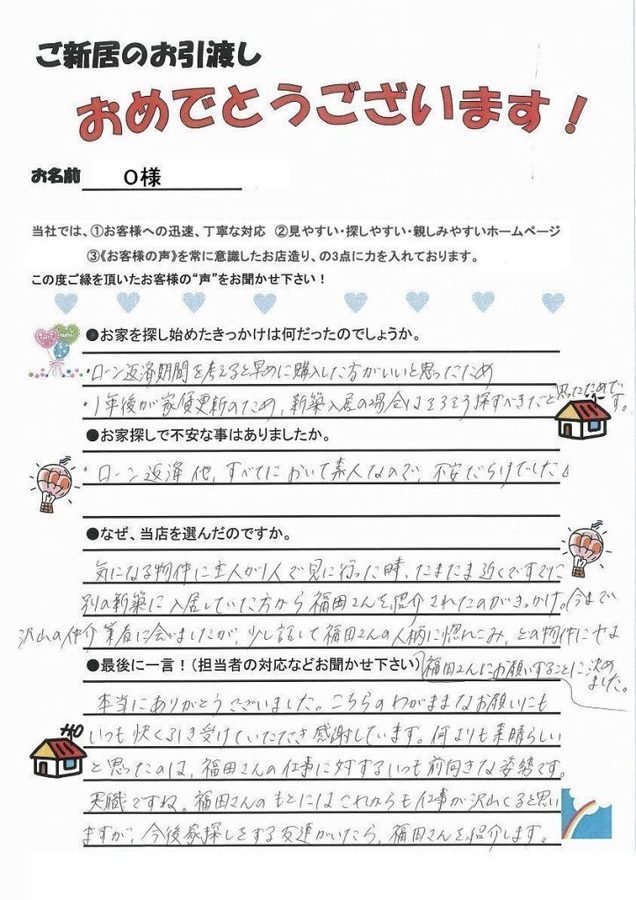 ご新居のお引渡し
おめでとうございます！
お名前 O様
当社では、①お客様への迅速、丁寧な対応 ②見やすい・探しやすい・親しみやすいホームページ
③《お客様の声》を常に意識したお店造り、の3点に力を入れております。
この度ご縁を頂いたお客様の“声”をお聞かせ下さい！
●お家を探し始めたきっかけは何だったのでしょうか。
・ローン返済期間を考えると早めに購入した方がいいと思ったため
・1年後が家賃更新のため、新築入居の場合はそろそろ探すべきだと思ったためです。
●お家探しで不安な事はありましたか。
・ローン返済他、すべてにおいて素人なので、不安だらけでした
●なぜ、当店を選んだのですか。
気になる物件に主人が1人で見に行った時、たまたま近くですでに
別の新築に入居していた方から福田さんを紹介されたのがきっかけ。今まで
沢山の仲介業者に会いましたが、少し話して福田さんの人柄に惚れこみ、どの物件にせよ
福田さんにお願いすることに決めました。
●最後に一言！（担当者の対応などお聞かせ下さい）
本当にありがとうございました。こちらのわがままなお願いにも
いつも快く引き受けていただき感謝しています。何よりも素晴らしい
と思ったのは、福田さんの仕事に対するいつも前向きな姿勢です。
天職ですね。福田さんのもとにはこれからも仕事が沢山くると思い
ますが、今後家探しをする友達がいたら、福田さんを紹介します。